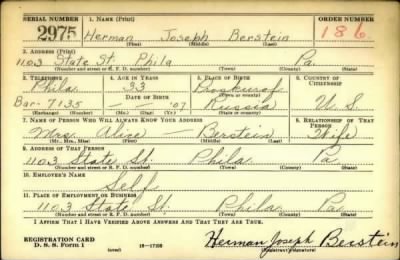 SERIAL NUMBER 1. NAME (Print) ORDER NUMBER
2975 Herman Joseph Berstein 186
(First) (Middle) (Last)
2. ADDRESS (Print)
1103 State St. Phila Pa.
(Number and street or R. F. D. number) (Town) (County) (State)
3. TELEPHONE 4. AGE IN YEARS 5. PLACE OF BIRTH 6. COUNTRY OF CITIZENSHIP
Phila 33 Proskurof
DATE OF BIRTH
Bar-7135 — — '07 Russia U.S.
(Exchange) (Number) (Mo.) (Day) (Yr.) (State or country)
7. NAME OF PERSON WHO WILL ALWAYS KNOW YOUR ADDRESS 8. RELATIONSHIP OF THAT PERSON
Mrs. Alice — Berstein Wife
(Mr., Mrs., Miss) (First) (Middle) (Last)
9. ADDRESS OF THAT PERSON
1103 State St. Phila Pa
(Number and street or R. F. D. number) (Town) (County) (State)
10. EMPLOYER'S NAME
Self
11. PLACE OF EMPLOYMENT OR BUSINESS
1103 State St. Phila Pa
(Number and street or R. F. D. number) (Town) (County) (State)
I AFFIRM THAT I HAVE VERIFIED ABOVE ANSWERS AND THAT THEY ARE TRUE.
REGISTRATION CARD
D. S. S. Form 1 (over) Herman Joseph Berstein
(Registrant's signature)